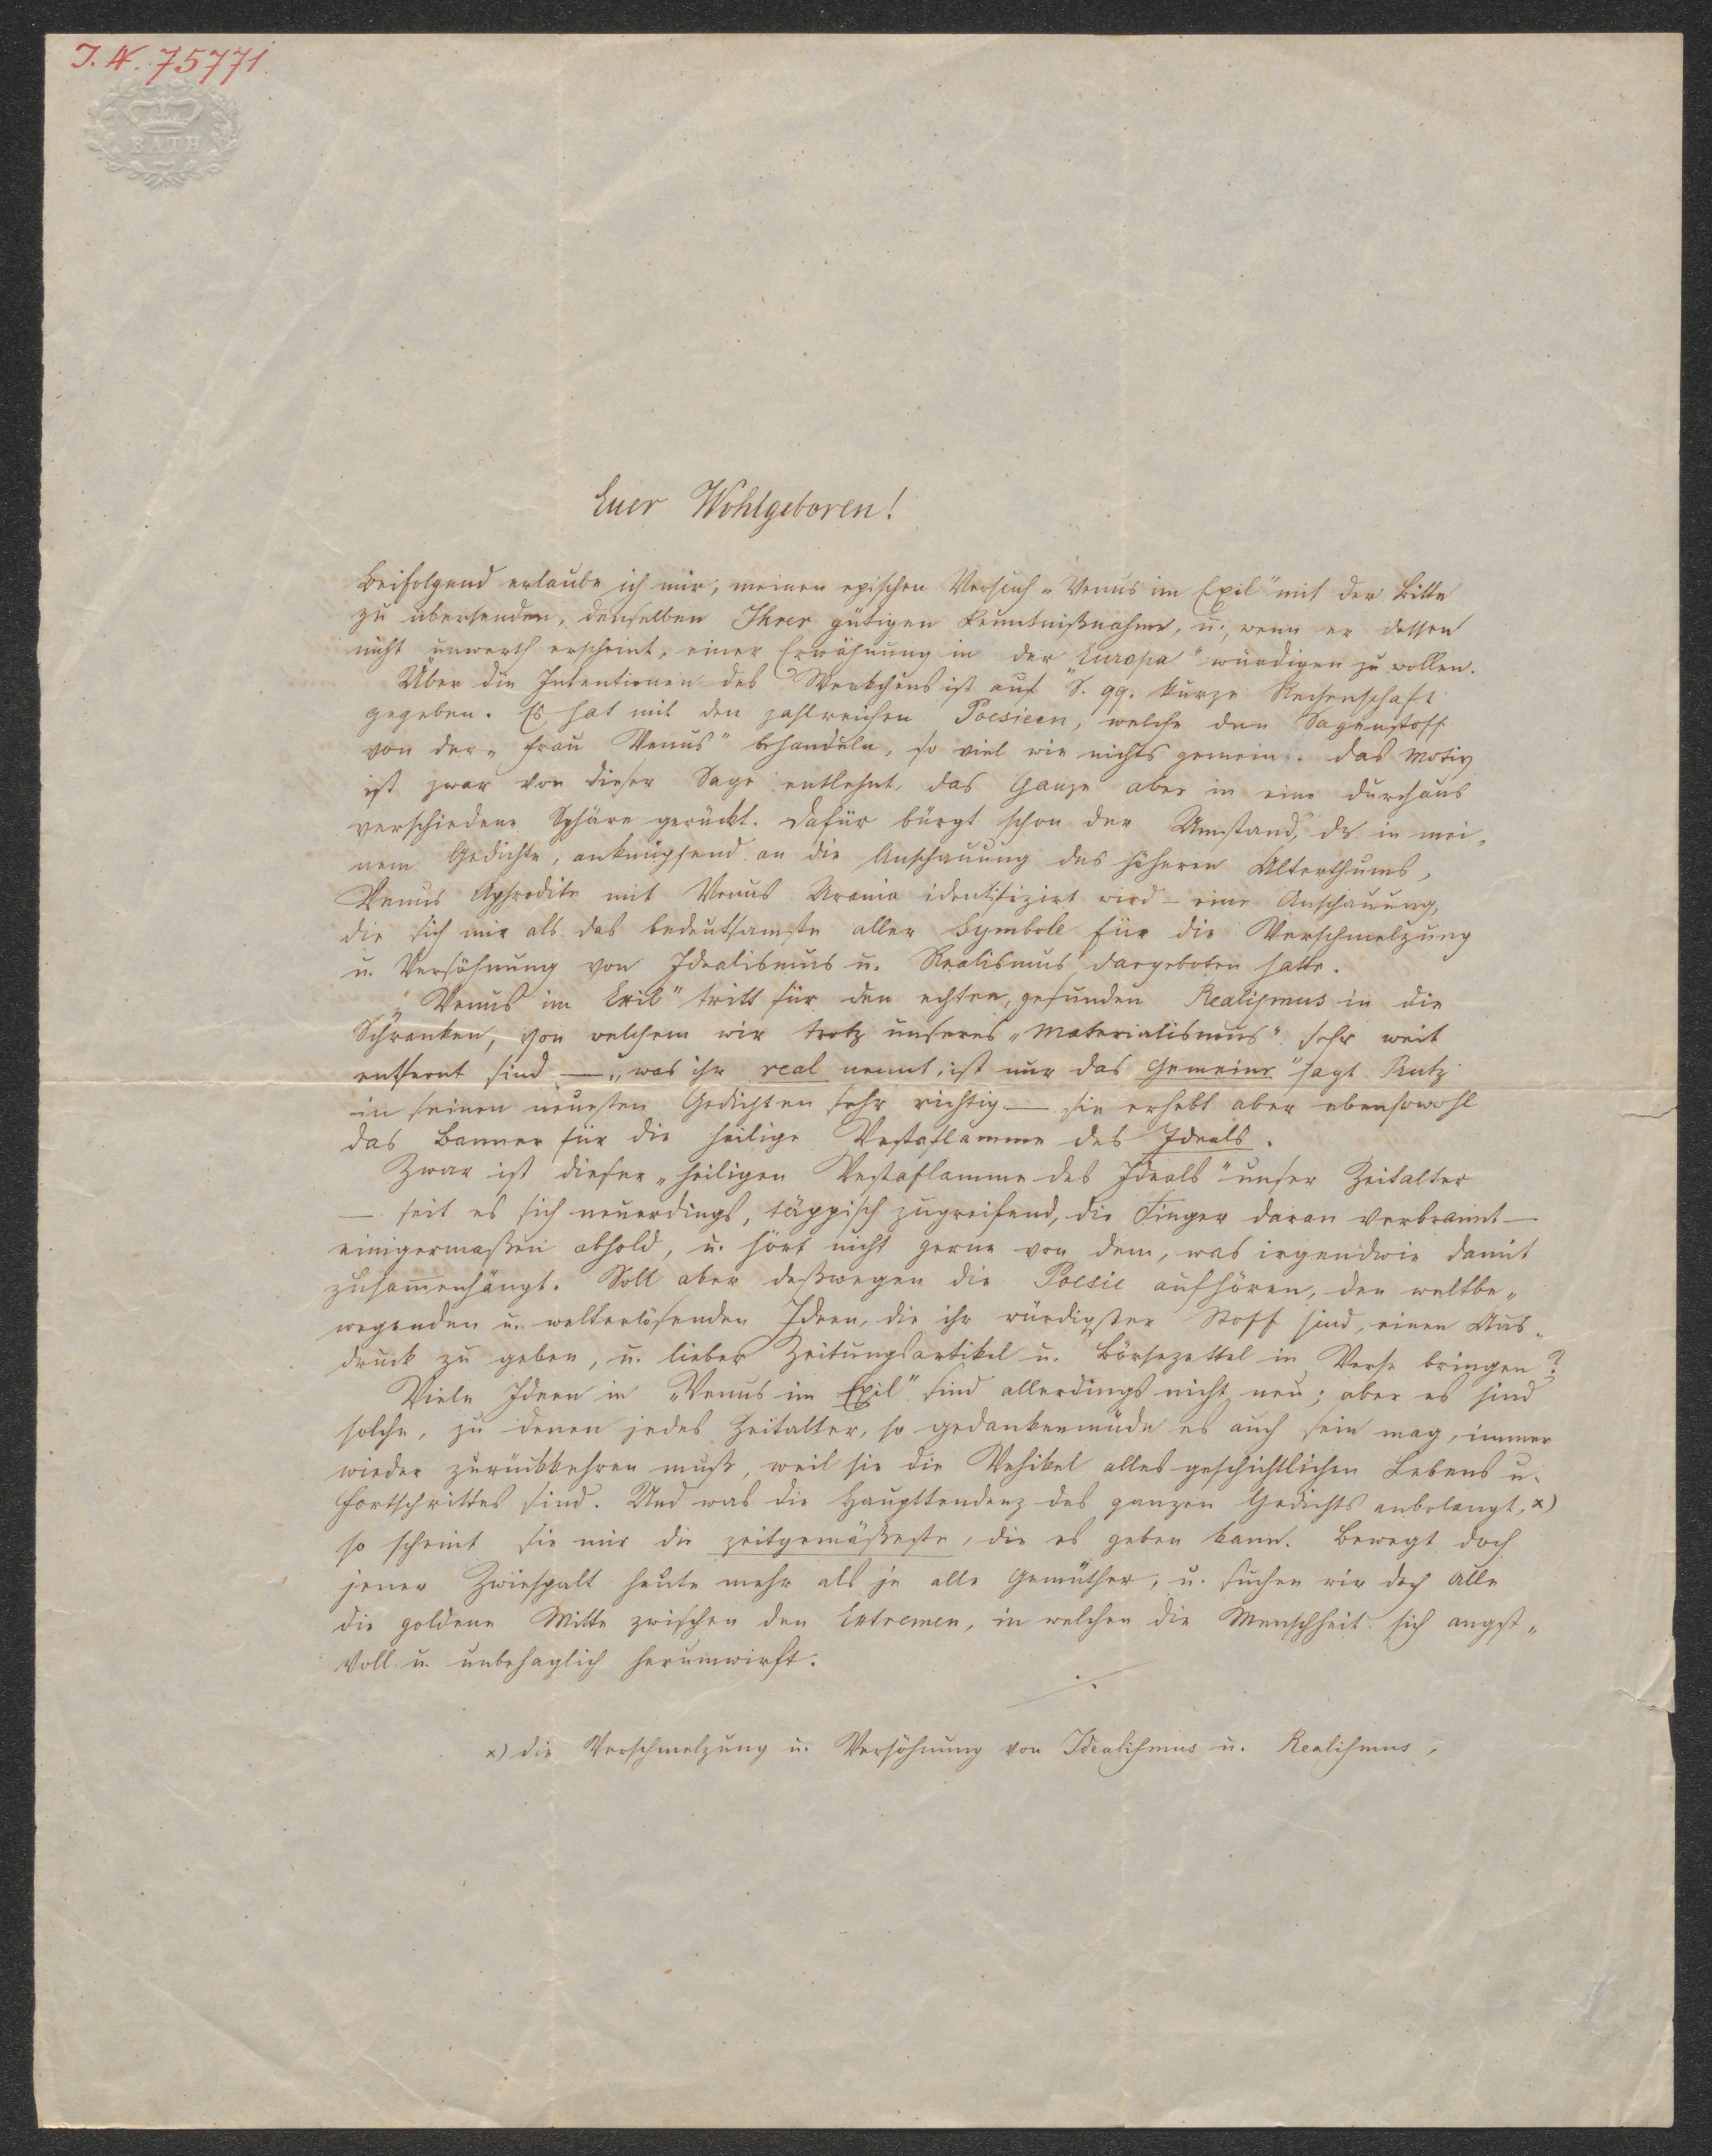 I. N. 75771
BATH
Euer Wohlgeboren!
Beifolgend erlaube ich mir, meinen epischen Versuch „Venus im Exil" mit der Bitte
zu übersenden, denselben Ihrer gütigen Kenntnißnahme, u., wenn er dessen
nicht unwerth erscheint, einer Erwähnung in der „Europa" würdigen zu wollen.
Über die Intentionen des Werkchens ist auf S. 99. kurze Rechenschaft
gegeben. Es hat mit den zahlreichen Poesieen, welche den Sagenstoff
von der „Frau Venus" behandeln, so viel wie nichts gemein. Das Motiv
ist zwar von dieser Sage entlehnt, das Ganze aber in eine durchaus
verschiedene Sphäre gerückt. Dafür bürgt schon der Umstand, dß in mei„
nem Gedichte, anknüpfend an die Anschauung des höheren Alterthums,
Venus Aphrodite mit Venus Urania identifizirt wird – eine Anschauung,
die sich mir als das bedeutsamste aller Symbole für die Verschmelzung
u. Versöhnung von Idealismus u. Realismus dargeboten hatte.
„Venus im Exil" tritt für den echten, gesunden Realismus in die
Schranken, von welchem wir trotz unseres „Materialismus" sehr weit
entfernt sind — „was ihr real nennt, ist nur das Gemeine" sagt Prutz
in seinen neuesten Gedichten sehr richtig — sie erhebt aber ebensowohl
das Banner für die heilige Vestaflamme des Ideals.
Zwar ist dieser „heiligen Vestaflamme des Ideals" unser Zeitalter
— seit es sich neuerdings, täppisch zugreifend, die Finger daran verbrannt —
einigermaßen abhold, u. hört nicht gerne von dem, was irgendwie damit
zusammenhängt. Soll aber deßwegen die Poesie aufhören, den weltbe„
wegenden u. welterlösenden Ideen, die ihr würdigster Stoff sind, einen Aus„
druck zu geben, u. lieber Zeitungsartikel u. Börsezettel in Verse bringen?
Viele Ideen in „Venus im Exil" sind allerdings nicht neu; aber es sind
solche, zu denen jedes Zeitalter, so gedankenmüde es auch sein mag, immer
wieder zurückkehren muß, weil sie die Vehikel alles geschichtlichen Lebens u.
Fortschrittes sind. Und was die Haupttendenz des ganzen Gedichts anbelangt, x)
so scheint sie mir die zeitgemäßeste, die es geben kann. Bewegt doch
jener Zwiespalt heute mehr als je alle Gemüther, u. suchen wir doch alle
die goldene Mitte zwischen den Extremen, in welchen die Menschheit sich angst„
voll u. unbehaglich herumwirft.
x) die Verschmelzung u. Versöhnung von Idealismus u. Realismus,